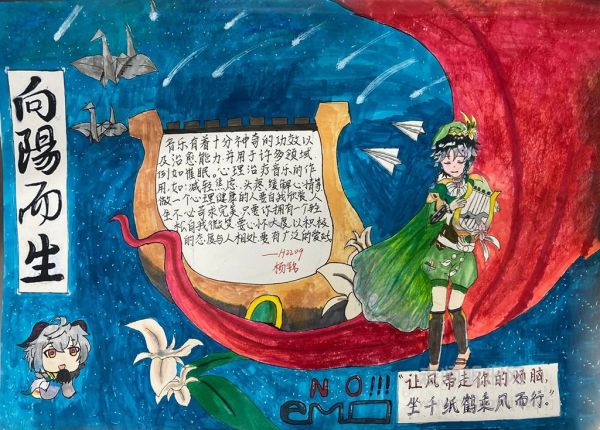 向陽而生
音乐有着十分神奇的功效以
及治愈能力并用于许多领域
例如催眠。心理治疗音乐的作
用,如:减轻焦虑、头疼、缓解心情等
做一个心理健康的人要自我欣赏人
生不必苛求完美只要你拥有一颗
松自我微笑要心怀大度以积极
的态度与人相处要有广泛的爱好
——H2209
杨铭
NO!!!
emo
“让风带走你的烦脑,
坐千纸鹤乘风而行。”